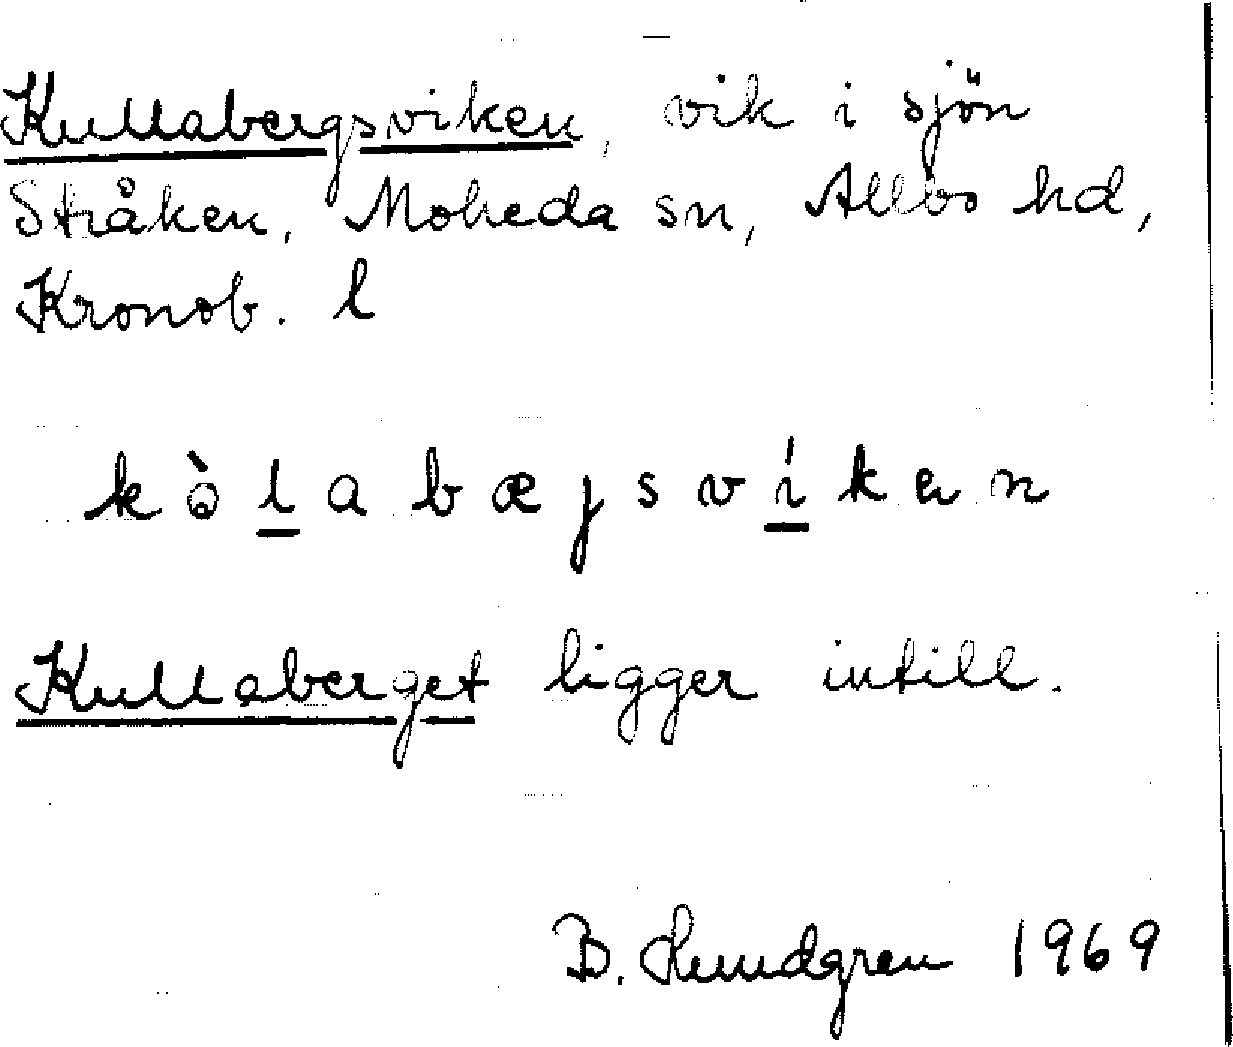 Kullabergsviken, vik i sjön
Stråken, Moheda sn, Allbo hd,
Kronob. l
kòlabæjsvíkan
Kullaberget ligger intill.
B. Lundgren 1969